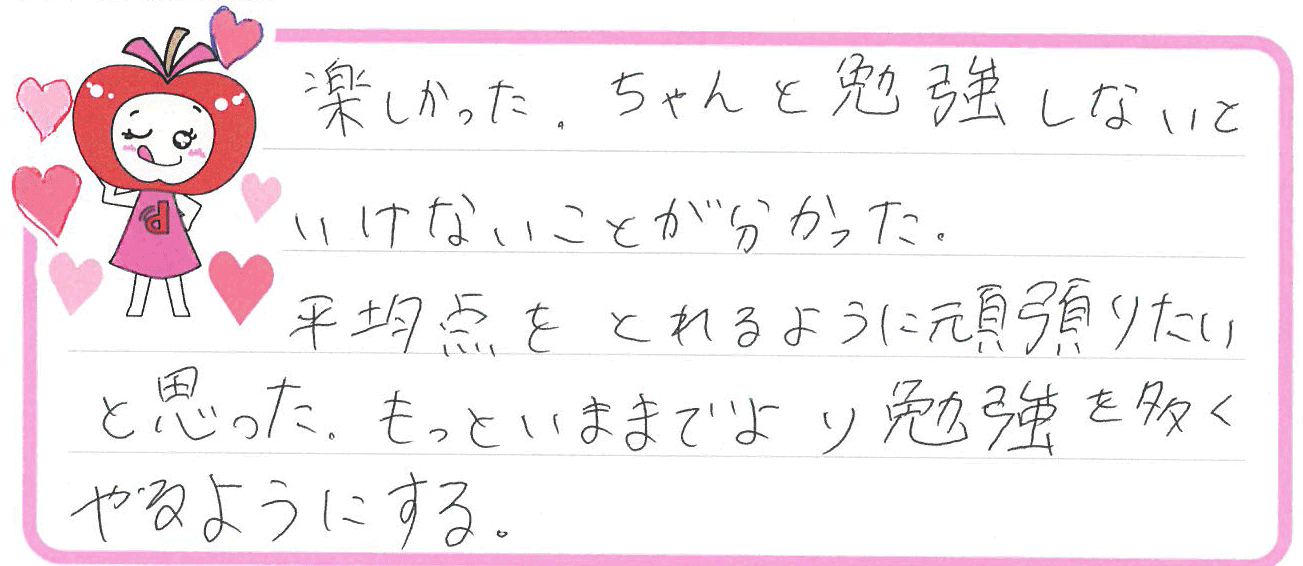 楽しかった。ちゃんと勉強しないと
いけないことが分かった。
平均点をとれるように頑張りたい
と思った。もっといままでより勉強を多く
やるようにする。